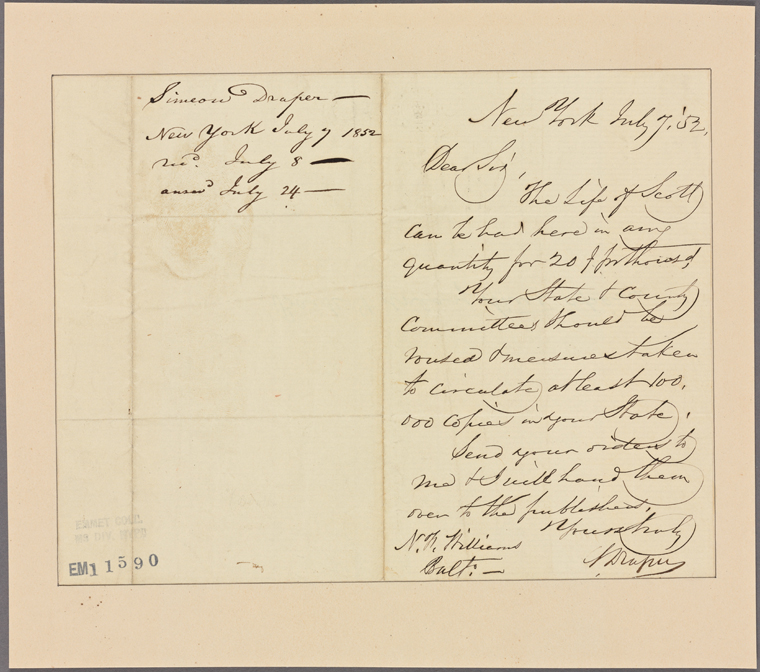 Simeon Draper —
New York July 7 1852
rec.d July 8 —
answd July 24 —
EMMET COLL.
EM11590
New York July 7, '52,
Dear Sir,
The Life of Scott
can be had here in any
quantity for 20 $ pr thousd,
Your State & County
Committees should be
roused & measures taken
to circulate at least 100,
000 copies in your State.
Send your orders to
me & I will hand them
over to the publishers.
Yours truly
S. Draper
N. Williams
Balt: —